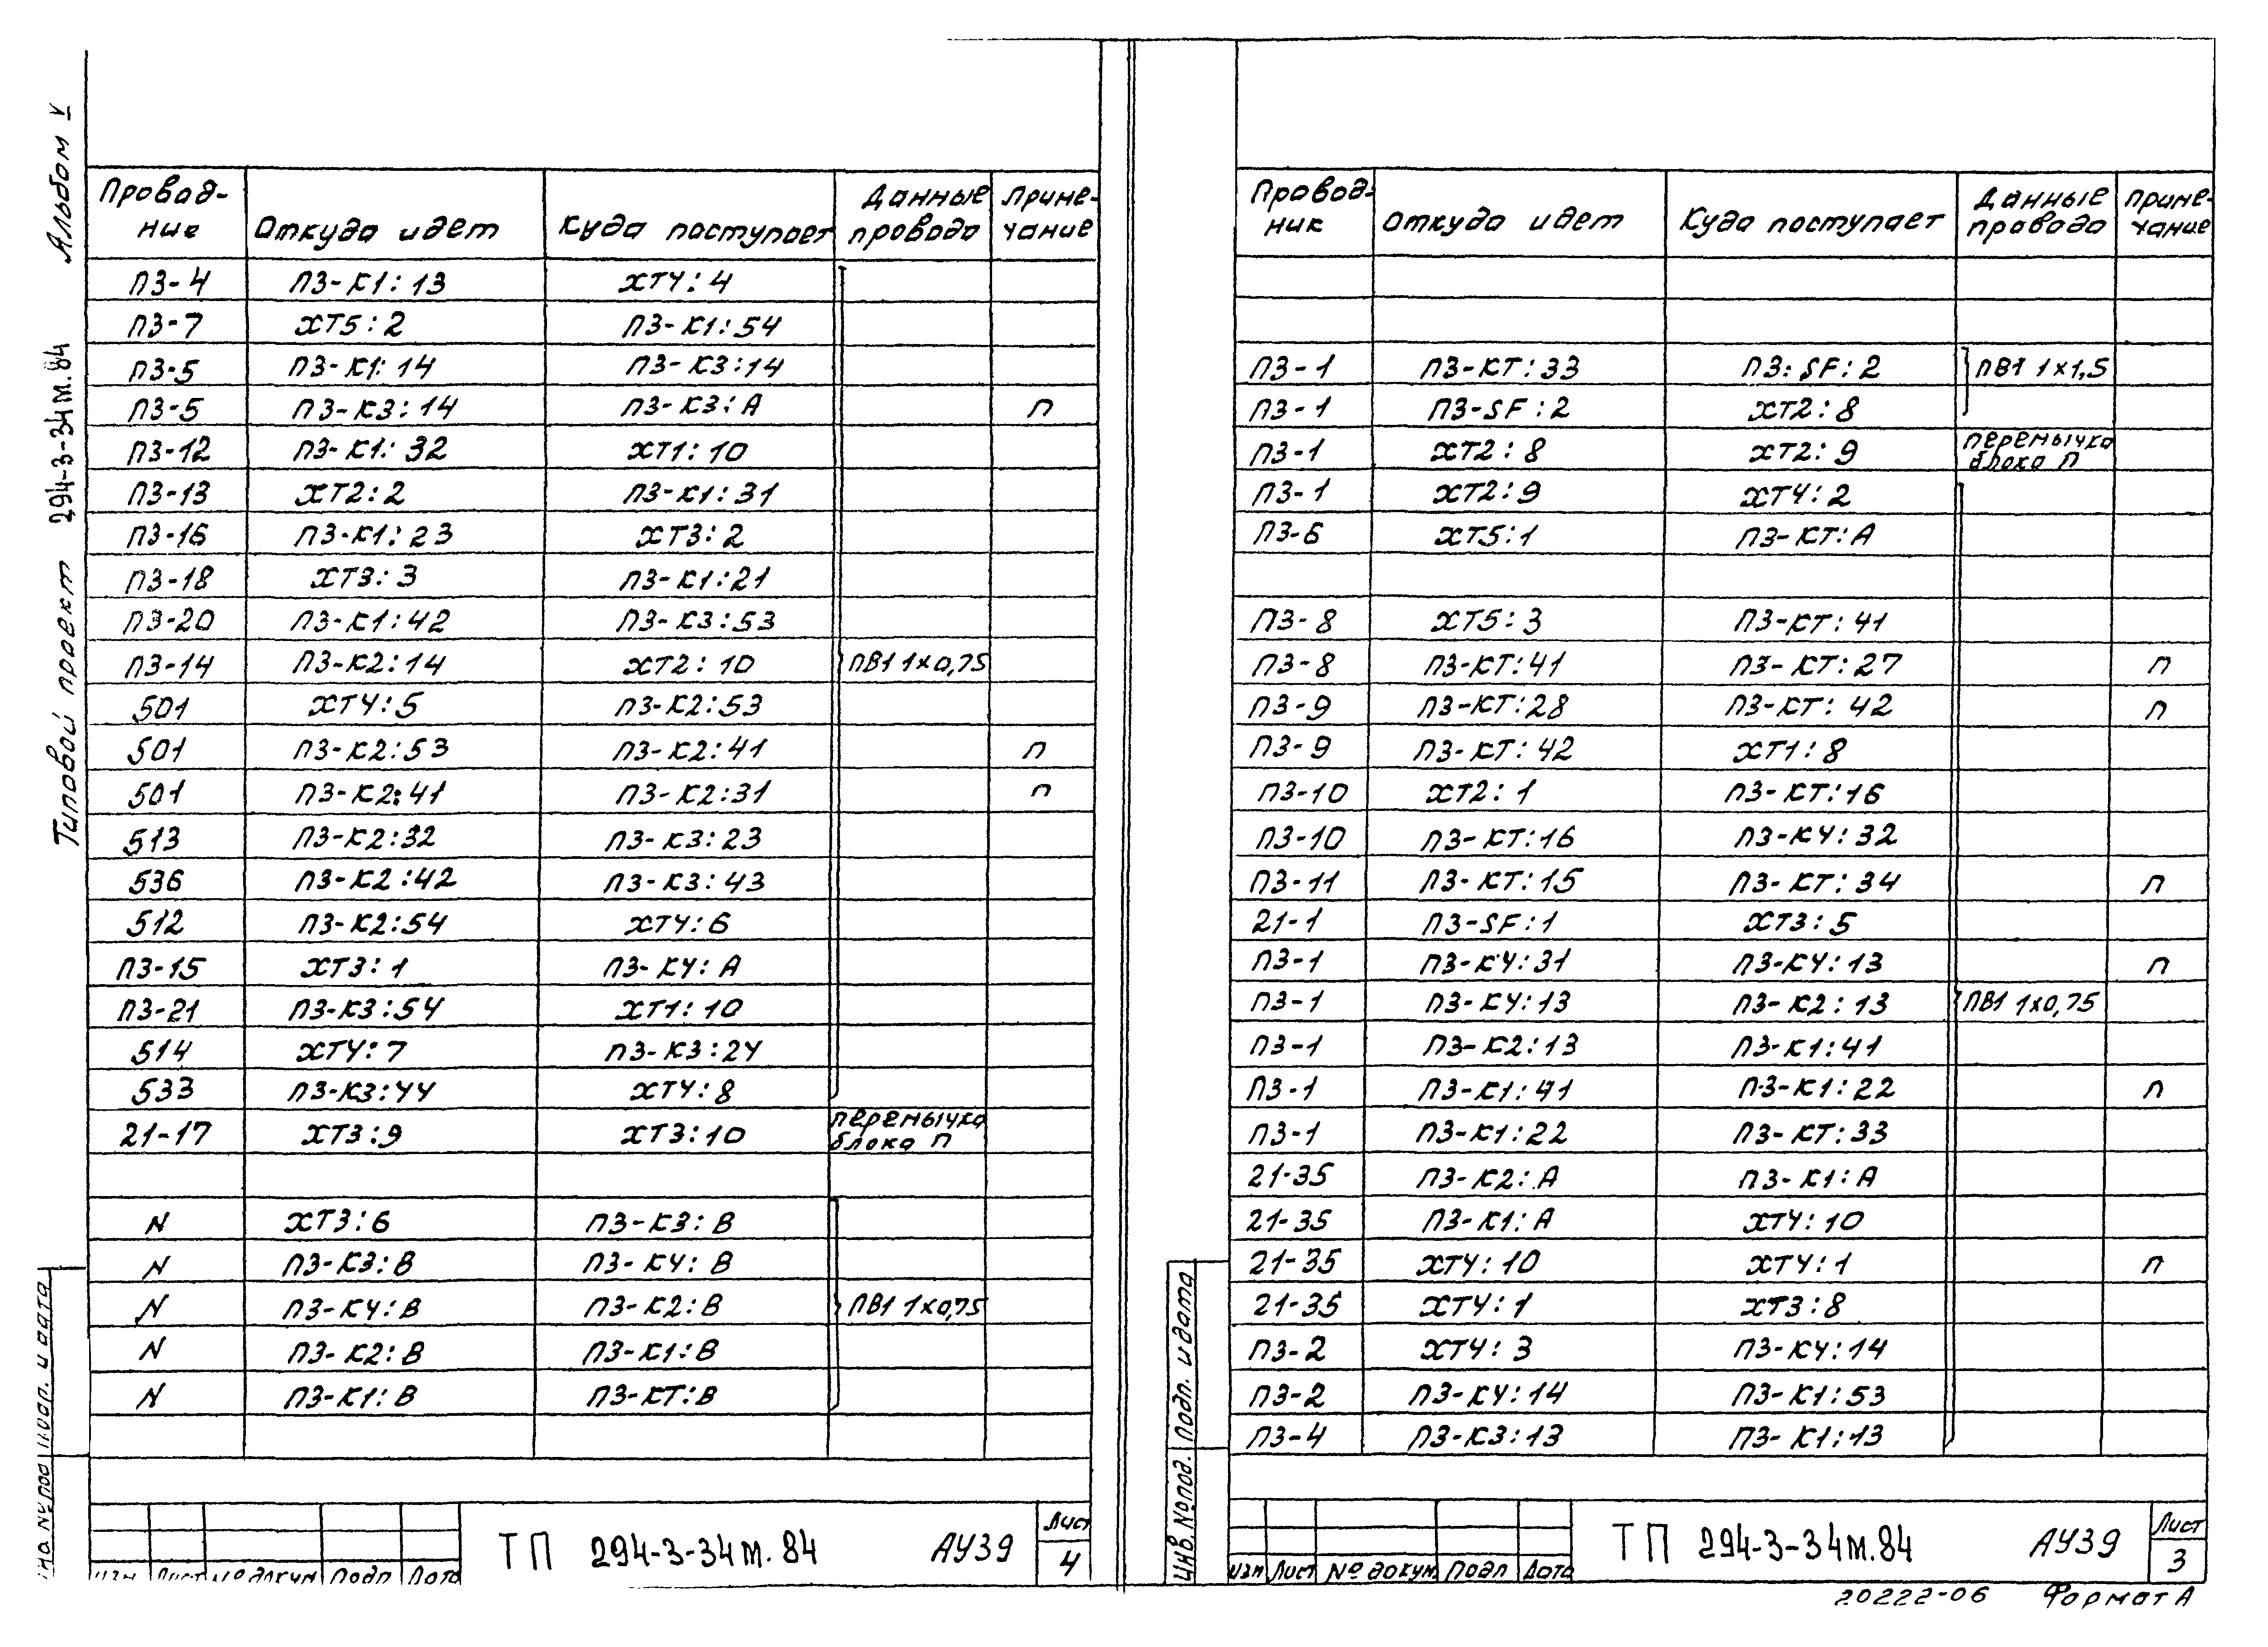 Типовой проект 294-3-34м.84 Альбом V
Провод- Откуда идет Куда поступает Данные Приме-
ник провода чание
П3-4 П3-К1:13 ХТ4:4
П3-7 ХТ5:2 П3-К1:54
П3-5 П3-К1:14 П3-К3:14
П3-5 П3-К3:14 П3-К3:А П
П3-12 П3-К1:32 ХТ1:10
П3-13 ХТ2:2 П3-К1:31
П3-16 П3-К1:23 ХТ3:2
П3-18 ХТ3:3 П3-К1:21
П3-20 П3-К1:42 П3-К3:53
П3-14 П3-К2:14 ХТ2:10 ПВ1 1×0,75
501 ХТ4:5 П3-К2:53
501 П3-К2:53 П3-К2:41 П
501 П3-К2:41 П3-К2:31 П
513 П3-К2:32 П3-К3:23
536 П3-К2:42 П3-К3:43
512 П3-К2:54 ХТ4:6
П3-15 ХТ3:1 П3-К4:А
П3-21 П3-К3:54 ХТ1:10
514 ХТ4:7 П3-К3:24
533 П3-К3:44 ХТ4:8
21-17 ХТ3:9 ХТ3:10 перемычка
блока П
N ХТ3:6 П3-К3:В
N П3-К3:В П3-К4:В
N П3-К4:В П3-К2:В ПВ1 1×0,75
N П3-К2:В П3-К1:В
N П3-К1:В П3-КТ:В
Инв. № под Подп. и дата
Изм Лист № докум Подп Дата
ТП 294-3-34м.84 АУ39
Лист
4
Провод- Откуда идет Куда поступает Данные Приме-
ник провода чание
П3-1 П3-КТ:33 П3:SF:2 ПВ1 1×1,5
П3-1 П3-SF:2 ХТ2:8
П3-1 ХТ2:8 ХТ2:9 перемычка
блока П
П3-1 ХТ2:9 ХТ4:2
П3-6 ХТ5:1 П3-КТ:А
П3-8 ХТ5:3 П3-КТ:41
П3-8 П3-КТ:41 П3-КТ:27 П
П3-9 П3-КТ:28 П3-КТ:42 П
П3-9 П3-КТ:42 ХТ1:8
П3-10 ХТ2:1 П3-КТ:16
П3-10 П3-КТ:16 П3-К4:32
П3-11 П3-КТ:15 П3-КТ:34 П
21-1 П3-SF:1 ХТ3:5
П3-1 П3-К4:31 П3-К4:13 П
П3-1 П3-К4:13 П3-К2:13 ПВ1 1×0,75
П3-1 П3-К2:13 П3-К1:41
П3-1 П3-К1:41 П3-К1:22 П
П3-1 П3-К1:22 П3-КТ:33
21-35 П3-К2:А П3-К1:А
21-35 П3-К1:А ХТ4:10
21-35 ХТ4:10 ХТ4:1 П
21-35 ХТ4:1 ХТ3:8
П3-2 ХТ4:3 П3-К4:14
П3-2 П3-К4:14 П3-К1:53
П3-4 П3-К3:13 П3-К1:13
Инв. № под. Подп. и дата
Изм Лист № докум Подп Дата
ТП 294-3-34м.84 АУ39
Лист
3
20222-06 Формат А